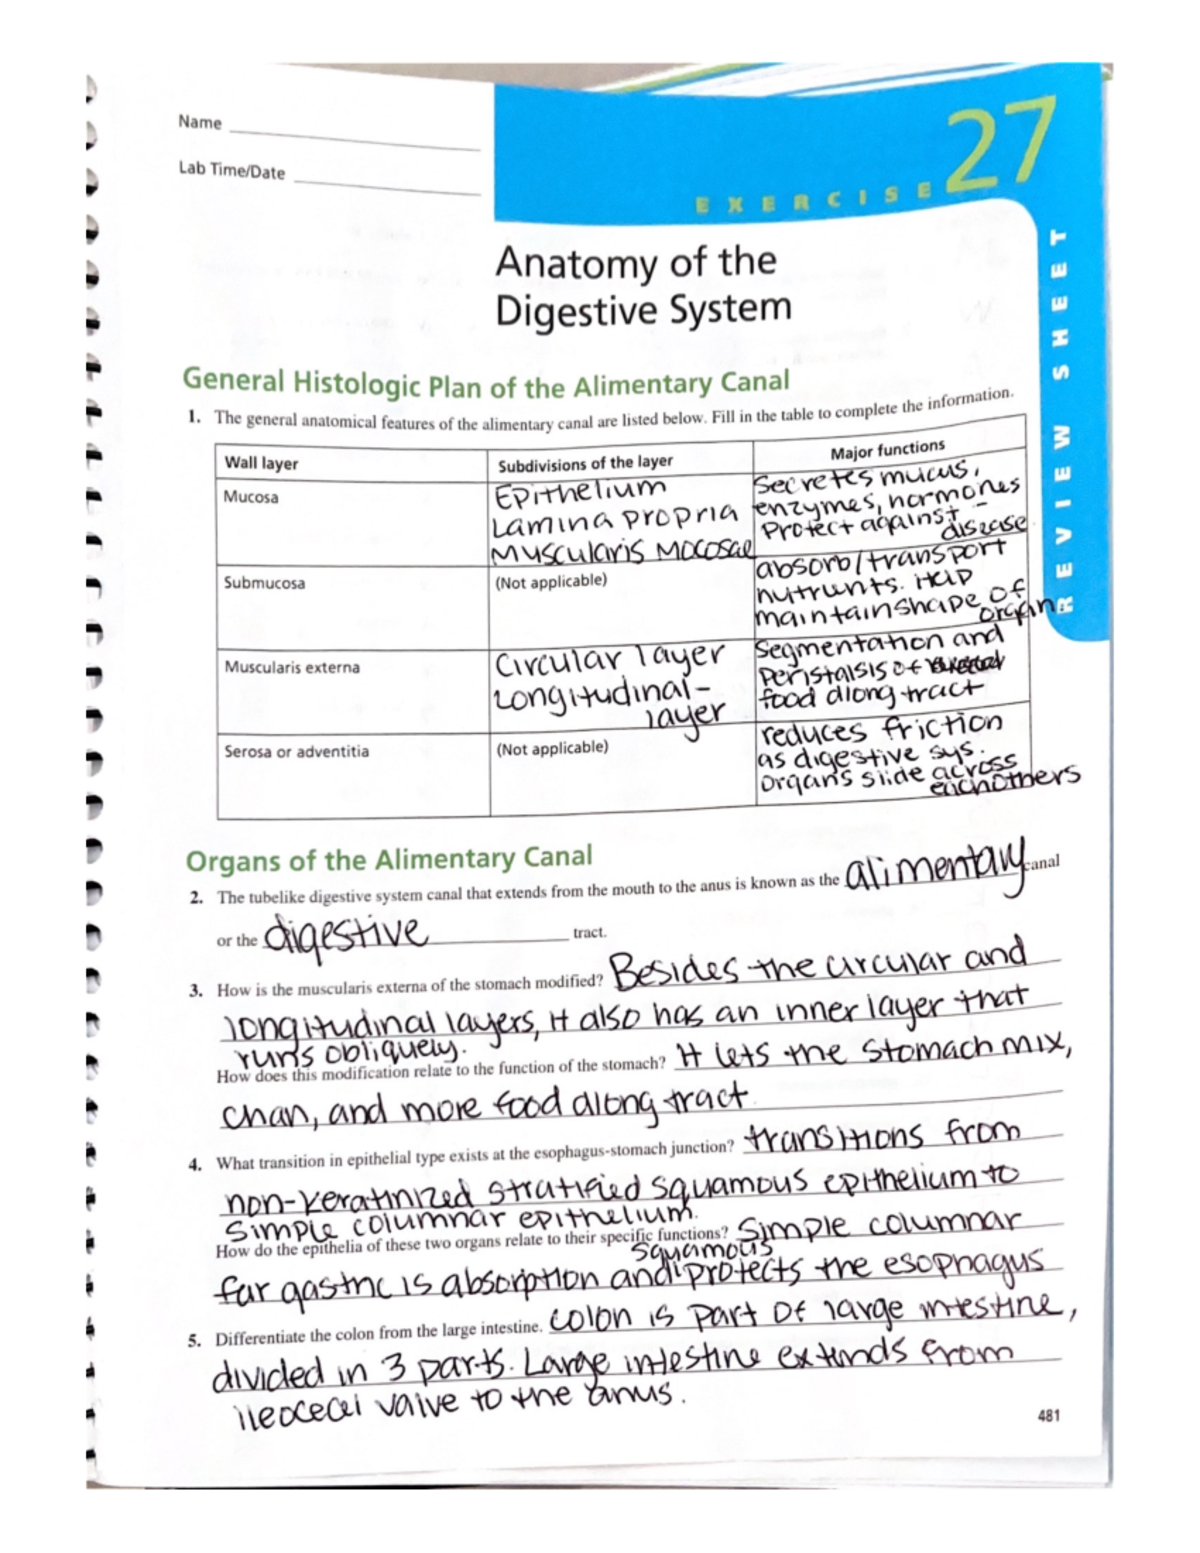 Name
Lab Time/Date
EXERCISE 27
REVIEW SHEET
Anatomy of the
Digestive System
General Histologic Plan of the Alimentary Canal
1. The general anatomical features of the alimentary canal are listed below. Fill in the table to complete the information.
Wall layer Subdivisions of the layer Major functions
Mucosa
Epithelium
Lamina propria
Muscularis Mocosae
Secretes mucus,
enzymes, hormones
Protect against -
disease
Submucosa
(Not applicable)
absorb/transport
nutrients. Help
maintain shape of
organ.
Muscularis externa
Circular layer
Longitudinal-
layer
Segmentation and
peristalsis of
food along tract
Serosa or adventitia
(Not applicable)
reduces friction
as digestive sys.
organs slide across
eachothers
Organs of the Alimentary Canal
2. The tubelike digestive system canal that extends from the mouth to the anus is known as the alimentary canal
or the digestive tract.
3. How is the muscularis externa of the stomach modified? Besides the circular and
longitudinal layers, it also has an inner layer that
runs obliquely.
How does this modification relate to the function of the stomach? It lets the stomach mix,
and more food along tract
4. What transition in epithelial type exists at the esophagus-stomach junction? transitions from
non-keratinized stratified squamous epithelium to
simple columnar epithelium.
How do the epithelia of these two organs relate to their specific functions? Simple columnar
squamous
far gastric is absorption and protects the esophagus
5. Differentiate the colon from the large intestine. Colon is part of large intestine,
divided in 3 parts. Large intestine extends from
ileocecal valve to the anus.
481